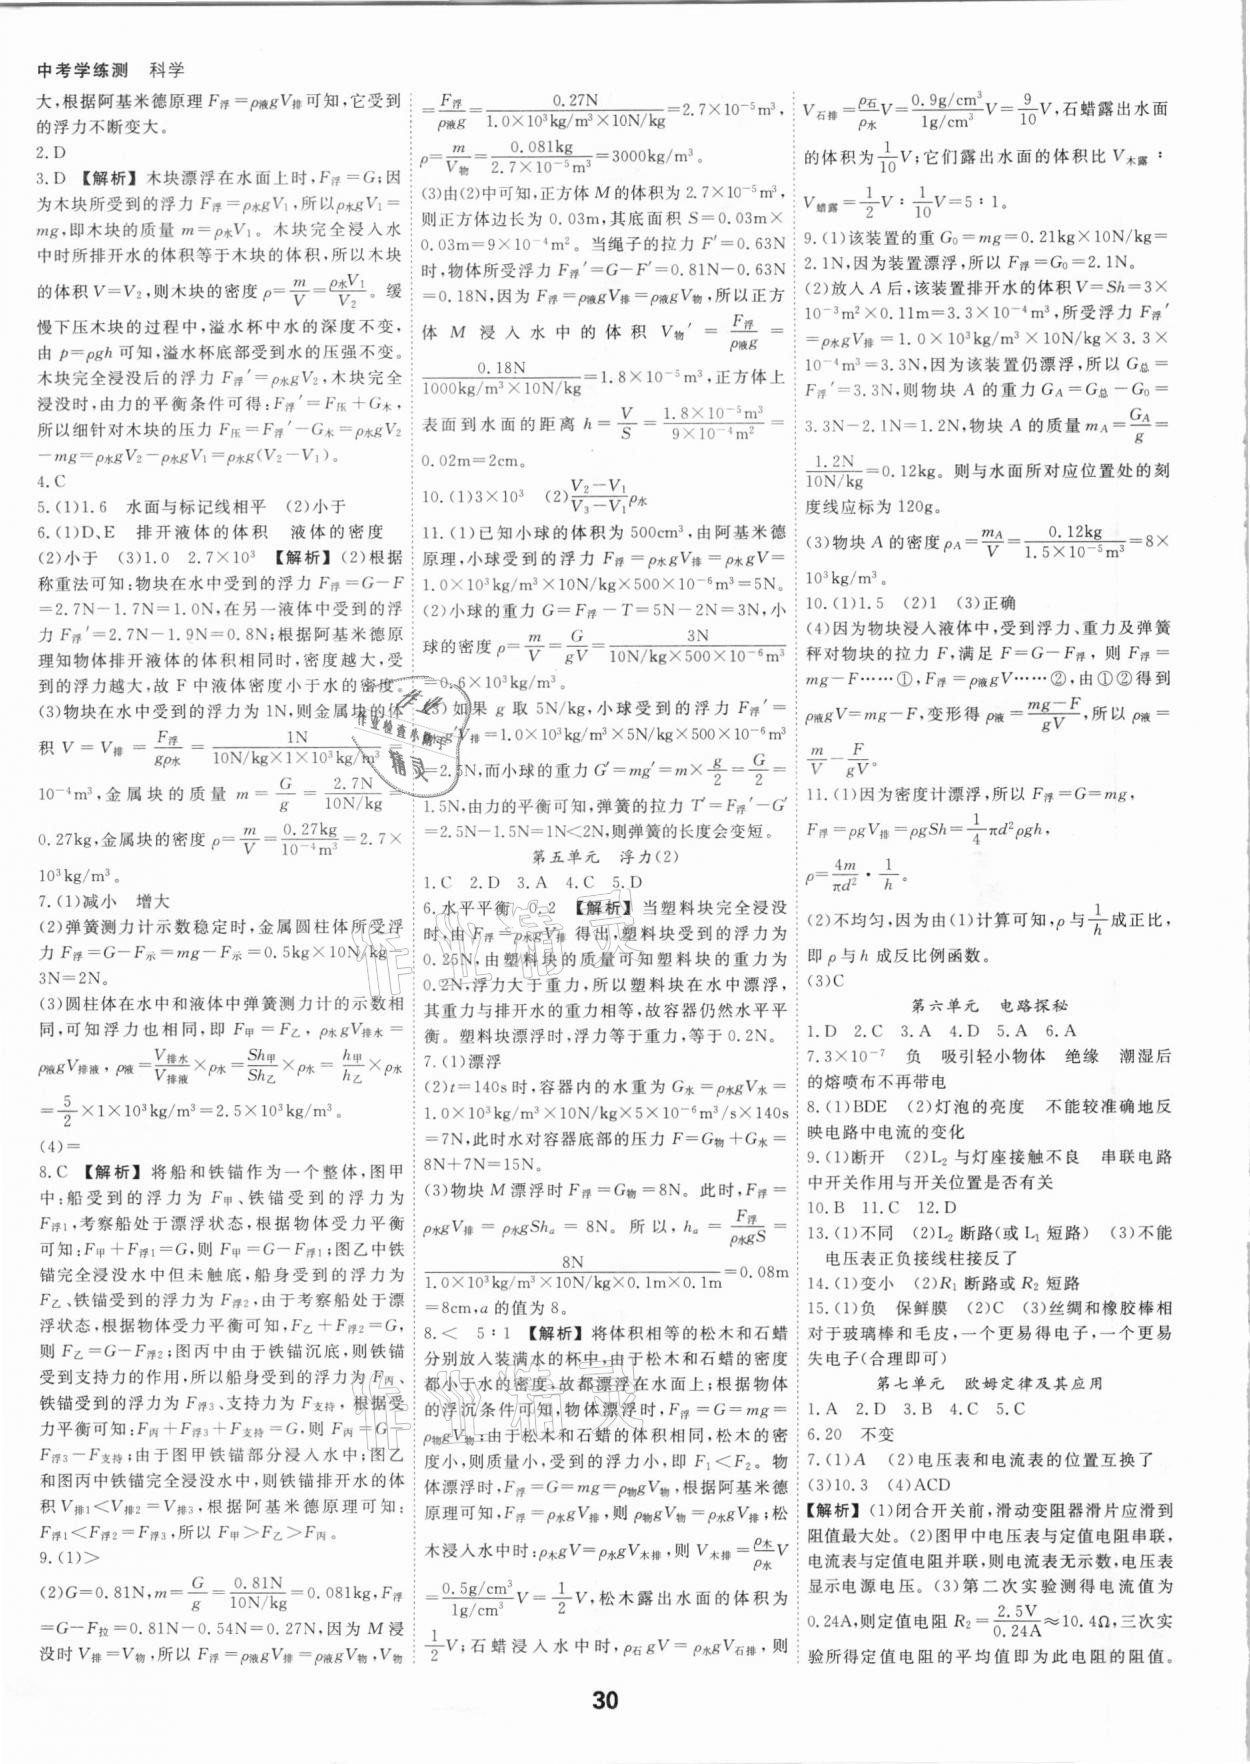 中考学练测 科学
大,根据阿基米德原理F浮=ρ液gV排可知,它受到
的浮力不断变大。
2.D
3.D 【解析】木块漂浮在水面上时,F浮=G;因
为木块所受到的浮力F浮=ρ水gV₁,所以ρ水gV₁=
mg,即木块的质量m=ρ水V₁。木块完全浸入水
中时所排开水的体积等于木块的体积,所以木块
的体积V=V₂,则木块的密度ρ=m/V=ρ水V₁/V₂。缓
慢下压木块的过程中,溢水杯中水的深度不变,
由p=ρgh可知,溢水杯底部受到水的压强不变。
木块完全浸没后的浮力F浮′=ρ水gV₂,木块完全
浸没时,由力的平衡条件可得:F浮′=F压+G木,
所以细针对木块的压力F压=F浮′-G木=ρ水gV₂
-mg=ρ水gV₂-ρ水gV₁=ρ水g(V₂-V₁)。
4.C
5.(1)1.6 水面与标记线相平 (2)小于
6.(1)D、E 排开液体的体积 液体的密度
(2)小于 (3)1.0 2.7×10³ 【解析】(2)根据
称重法可知:物块在水中受到的浮力F浮=G-F
=2.7N-1.7N=1.0N,在另一液体中受到的浮
力F浮′=2.7N-1.9N=0.8N;根据阿基米德原
理知物体排开液体的体积相同时,密度越大,受
到的浮力越大,故F中液体密度小于水的密度。
(3)物块在水中受到的浮力为1N,则金属块的体
积V=V排=F浮/gρ水=1N/(10N/kg×1×10³kg/m³)=
10⁻⁴m³,金属块的质量m=G/g=2.7N/(10N/kg)=
0.27kg,金属块的密度ρ=m/V=0.27kg/10⁻⁴m³=2.7×
10³kg/m³。
7.(1)减小 增大
(2)弹簧测力计示数稳定时,金属圆柱体所受浮
力F浮=G-F示=mg-F示=0.5kg×10N/kg-
3N=2N。
(3)圆柱体在水中和液体中弹簧测力计的示数相
同,可知浮力也相同,即F甲=F乙,ρ水gV排水=
ρ液gV排液,ρ液=V排水/V排液×ρ水=Sh甲/Sh乙×ρ水=h甲/h乙×ρ水
=5/2×1×10³kg/m³=2.5×10³kg/m³。
(4)=
8.C 【解析】将船和铁锚作为一个整体,图甲
中:船受到的浮力为F甲、铁锚受到的浮力为
F浮1,考察船处于漂浮状态,根据物体受力平衡
可知:F甲+F浮1=G,则F甲=G-F浮1;图乙中铁
锚完全浸没水中但未触底,船身受到的浮力为
F乙、铁锚受到的浮力为F浮2,由于考察船处于漂
浮状态,根据物体受力平衡可知,F乙+F浮2=G,
则F乙=G-F浮2;图丙中由于铁锚沉底,则铁锚
受到支持力的作用,所以船身受到的浮力为F丙、
铁锚受到的浮力为F浮3、支持力为F支持,根据受
力平衡可知:F丙+F浮3+F支持=G,则F丙=G-
F浮3-F支持;由于图甲铁锚部分浸入水中;图乙
和图丙中铁锚完全浸没水中,则铁锚排开水的体
积V排1<V排2=V排3,根据阿基米德原理可知:
F浮1<F浮2=F浮3,所以F甲>F乙>F丙。
9.(1)>
(2)G=0.81N,m=G/g=0.81N/(10N/kg)=0.081kg,F浮
=G-F拉=0.81N-0.54N=0.27N,因为M浸
没时V排=V物,所以F浮=ρ液gV排=ρ液gV物,V物
=F浮/ρ液g=0.27N/(1.0×10³kg/m³×10N/kg)=2.7×10⁻⁵m³,
ρ=m/V物=0.081kg/(2.7×10⁻⁵m³)=3000kg/m³。
(3)由(2)中可知,正方体M的体积为2.7×10⁻⁵m³,
则正方体边长为0.03m,其底面积S=0.03m×
0.03m=9×10⁻⁴m²。当绳子的拉力F′=0.63N
时,物体所受浮力F浮′=G-F′=0.81N-0.63N
=0.18N,因为F浮=ρ液gV排=ρ液gV物,所以正方
体M浸入水中的体积V物′=F浮/ρ液g=
0.18N/(1000kg/m³×10N/kg)=1.8×10⁻⁵m³,正方体上
表面到水面的距离h=V/S=1.8×10⁻⁵m³/9×10⁻⁴m²=
0.02m=2cm。
10.(1)3×10³ (2)(V₂-V₁)/(V₃-V₁)ρ水
11.(1)已知小球的体积为500cm³,由阿基米德
原理,小球受到的浮力F浮=ρ水gV排=ρ水gV=
1.0×10³kg/m³×10N/kg×500×10⁻⁶m³=5N。
(2)小球的重力G=F浮-T=5N-2N=3N,小
球的密度ρ=m/V=G/gV=3N/(10N/kg×500×10⁻⁶m³)
=0.6×10³kg/m³。
(3)如果g取5N/kg,小球受到的浮力F浮′=
g′V排=1.0×10³kg/m³×5N/kg×500×10⁻⁶m³
=2.5N,而小球的重力G′=mg′=m×g/2=G/2=
1.5N,由力的平衡可知,弹簧的拉力T′=F浮′-G′
=2.5N-1.5N=1N<2N,则弹簧的长度会变短。
第五单元 浮力(2)
1.C 2.D 3.A 4.C 5.D
6.水平平衡 0.2 【解析】当塑料块完全浸没
时,由F浮=ρ水gV排得出,塑料块受到的浮力为
0.25N,由塑料块的质量可知塑料块的重力为
0.2N,浮力大于重力,所以塑料块在水中漂浮,
其重力与排开水的重力相等,故容器仍然水平平
衡。塑料块漂浮时,浮力等于重力,等于0.2N。
7.(1)漂浮
(2)t=140s时,容器内的水重为G水=ρ水gV水=
1.0×10³kg/m³×10N/kg×5×10⁻⁶m³/s×140s
=7N,此时水对容器底部的压力F=G物+G水=
8N+7N=15N。
(3)物块M漂浮时F浮=G物=8N。此时,F浮=
ρ水gV排=ρ水gShₐ=8N。所以,hₐ=F浮/ρ水gS=
8N/(1.0×10³kg/m³×10N/kg×0.1m×0.1m)=0.08m
=8cm,a的值为8。
8.< 5∶1 【解析】将体积相等的松木和石蜡
分别放入装满水的杯中,由于松木和石蜡的密度
都小于水的密度,故都漂浮在水面上;根据物体
的浮沉条件可知,物体漂浮时,F浮=G=mg=
ρ物gV物;由于松木和石蜡的体积相同,松木的密
度小,则质量小,受到的浮力小,即F₁<F₂。物
体漂浮时,F浮=G=mg=ρ物gV物,根据阿基米德
原理可知,F浮=ρ水gV排,则ρ物gV物=ρ水gV排;松
木浸入水中时:ρ木gV=ρ水gV木排,则V木排=ρ木/ρ水V
=0.5g/cm³/1g/cm³V=1/2V,松木露出水面的体积为
1/2V;石蜡浸入水中时,ρ石gV=ρ水gV石排,则
V石排=ρ石/ρ水V=0.9g/cm³/1g/cm³V=9/10V,石蜡露出水面
的体积为1/10V;它们露出水面的体积比V木露∶
V蜡露=1/2V∶1/10V=5∶1。
9.(1)该装置的重G₀=mg=0.21kg×10N/kg=
2.1N,因为装置漂浮,所以F浮=G₀=2.1N。
(2)放入A后,该装置排开水的体积V=Sh=3×
10⁻³m²×0.11m=3.3×10⁻⁴m³,所受浮力F浮′
=ρ水gV排=1.0×10³kg/m³×10N/kg×3.3×
10⁻⁴m³=3.3N,因为该装置仍漂浮,所以G总=
F浮′=3.3N,则物块A的重力G_A=G总-G₀=
3.3N-2.1N=1.2N,物块A的质量m_A=G_A/g=
1.2N/(10N/kg)=0.12kg。则与水面所对应位置处的刻
度线应标为120g。
(3)物块A的密度ρ_A=m_A/V=0.12kg/(1.5×10⁻⁵m³)=8×
10³kg/m³。
10.(1)1.5 (2)1 (3)正确
(4)因为物块浸入液体中,受浮力、重力及弹簧
秤对物块的拉力F,满足F=G-F浮,则F浮=
mg-F……①,F浮=ρ液gV……②,由①②得到
ρ液gV=mg-F,变形得ρ液=(mg-F)/gV,所以ρ液=
m/V-F/gV。
11.(1)因为密度计漂浮,所以F浮=G=mg,
F浮=ρgV排=ρgSh=1/4πd²ρgh,
ρ=4m/πd²·1/h。
(2)不均匀,因为由(1)计算可知,ρ与1/h成正比,
即ρ与h成反比例函数。
(3)C
第六单元 电路探秘
1.D 2.C 3.A 4.D 5.A 6.A
7.3×10⁻⁷ 负 吸引轻小物体 绝缘 潮湿后
的熔喷布不再带电
8.(1)BDE (2)灯泡的亮度 不能较准确地反
映电路中电流的变化
9.(1)断开 (2)L₂与灯座接触不良 串联电路
中开关作用与开关位置是否有关
10.B 11.C 12.D
13.(1)不同 (2)L₂断路(或L₁短路) (3)不能
电压表正负接线柱接反了
14.(1)变小 (2)R₁断路或R₂短路
15.(1)负 保鲜膜 (2)C (3)丝绸和橡胶棒相
对于玻璃棒和毛皮,一个更易得电子,一个更易
失电子(合理即可)
第七单元 欧姆定律及其应用
1.A 2.D 3.B 4.C 5.C
6.20 不变
7.(1)A (2)电压表和电流表的位置互换了
(3)10.3 (4)ACD
【解析】(1)闭合开关前,滑动变阻器滑片应滑到
阻值最大处。(2)图甲中电压表与定值电阻串联,
电流表与定值电阻并联,则电流表无示数,电压表
显示电源电压。(3)第二次实验测得电流值为
0.24A,则定值电阻R₂=2.5V/0.24A≈10.4Ω,三次实
验所得定值电阻的平均值即为此电阻的阻值。
30
作业
作业检查小助手
精灵
作业精灵
作业精灵